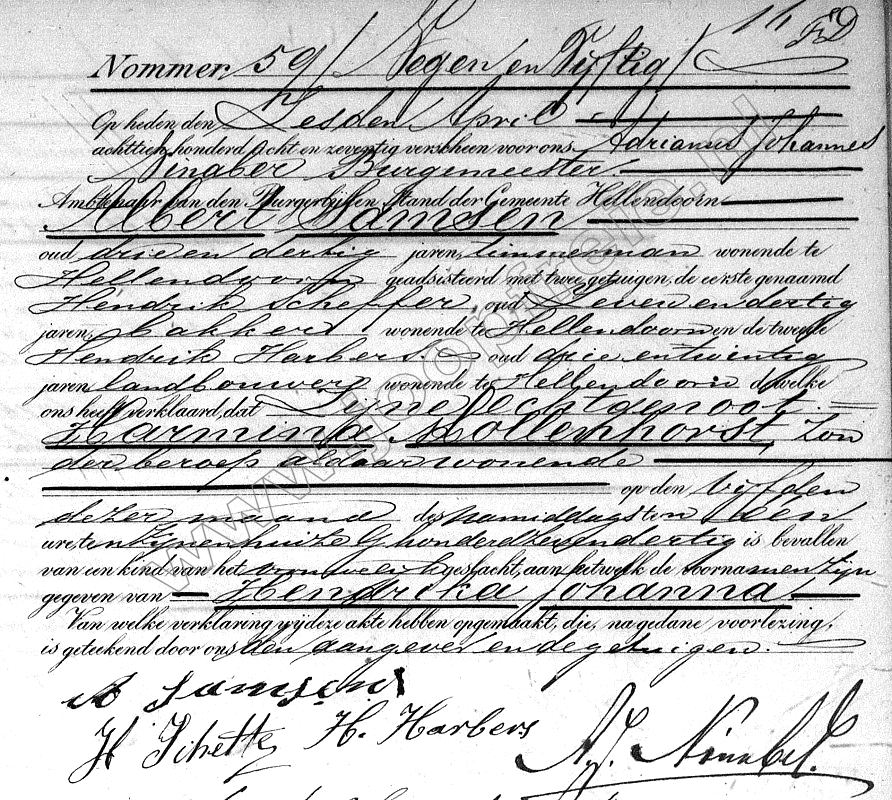 11 FD
Nommer. 59/ Negen en Vijftig/
Op heden den Zesden April
achttien honderd Acht en zeventig verscheen voor ons Adrianus Johannes
Ninaber Burgemeester
Ambtenaar van den Burgerlijken Stand der Gemeente Hellendoorn
Albert Samsen
oud drie en dertig jaren, timmerman wonende te
Hellendoorn geadsisteerd met twee getuigen, de eerste genaamd
Hendrik Scheffer, oud Zeven en dertig
jaren, bakker wonende te Hellendoorn en de tweede
Hendrik Harbers oud drie en twintig
jaren landbouwer wonende te Hellendoorn dewelke
ons heeft verklaard, dat Zijne Echtgenoot
Harmina Mollenhorst, Zon
der beroep aldaar wonende
op den vijfden
dezer maand des namiddags ten een
ure, ten zijnen huize G honderd zes en dertig is bevallen
van een kind van het vrouwelijk geslacht, aan hetwelk de voornamen zijn
gegeven van Hendrika Johanna
Van welke verklaring wij deze akte hebben opgemaakt, die, na gedane voorlezing,
is geteekend door ons den aangever en de getuigen.
A Samsen
H Scheffer H. Harbers
A.J. Ninaber.